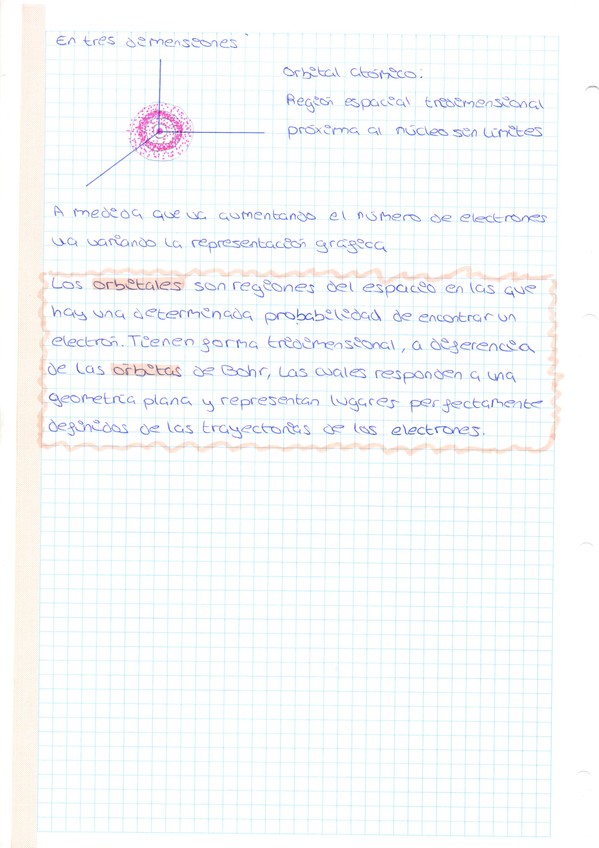 En tres dimensiones
Orbital atómico:
Región espacial tridimensional
próxima al núcleo sin límites
A medida que va aumentando el número de electrones
va variando la representación gráfica
Los orbitales son regiones del espacio en las que
hay una determinada probabilidad de encontrar un
electrón. Tienen forma tridimensional, a diferencia
de las órbitas de Bohr, las cuales responden a una
geometría plana y representan lugares perfectamente
definidos de las trayectorias de los electrones.